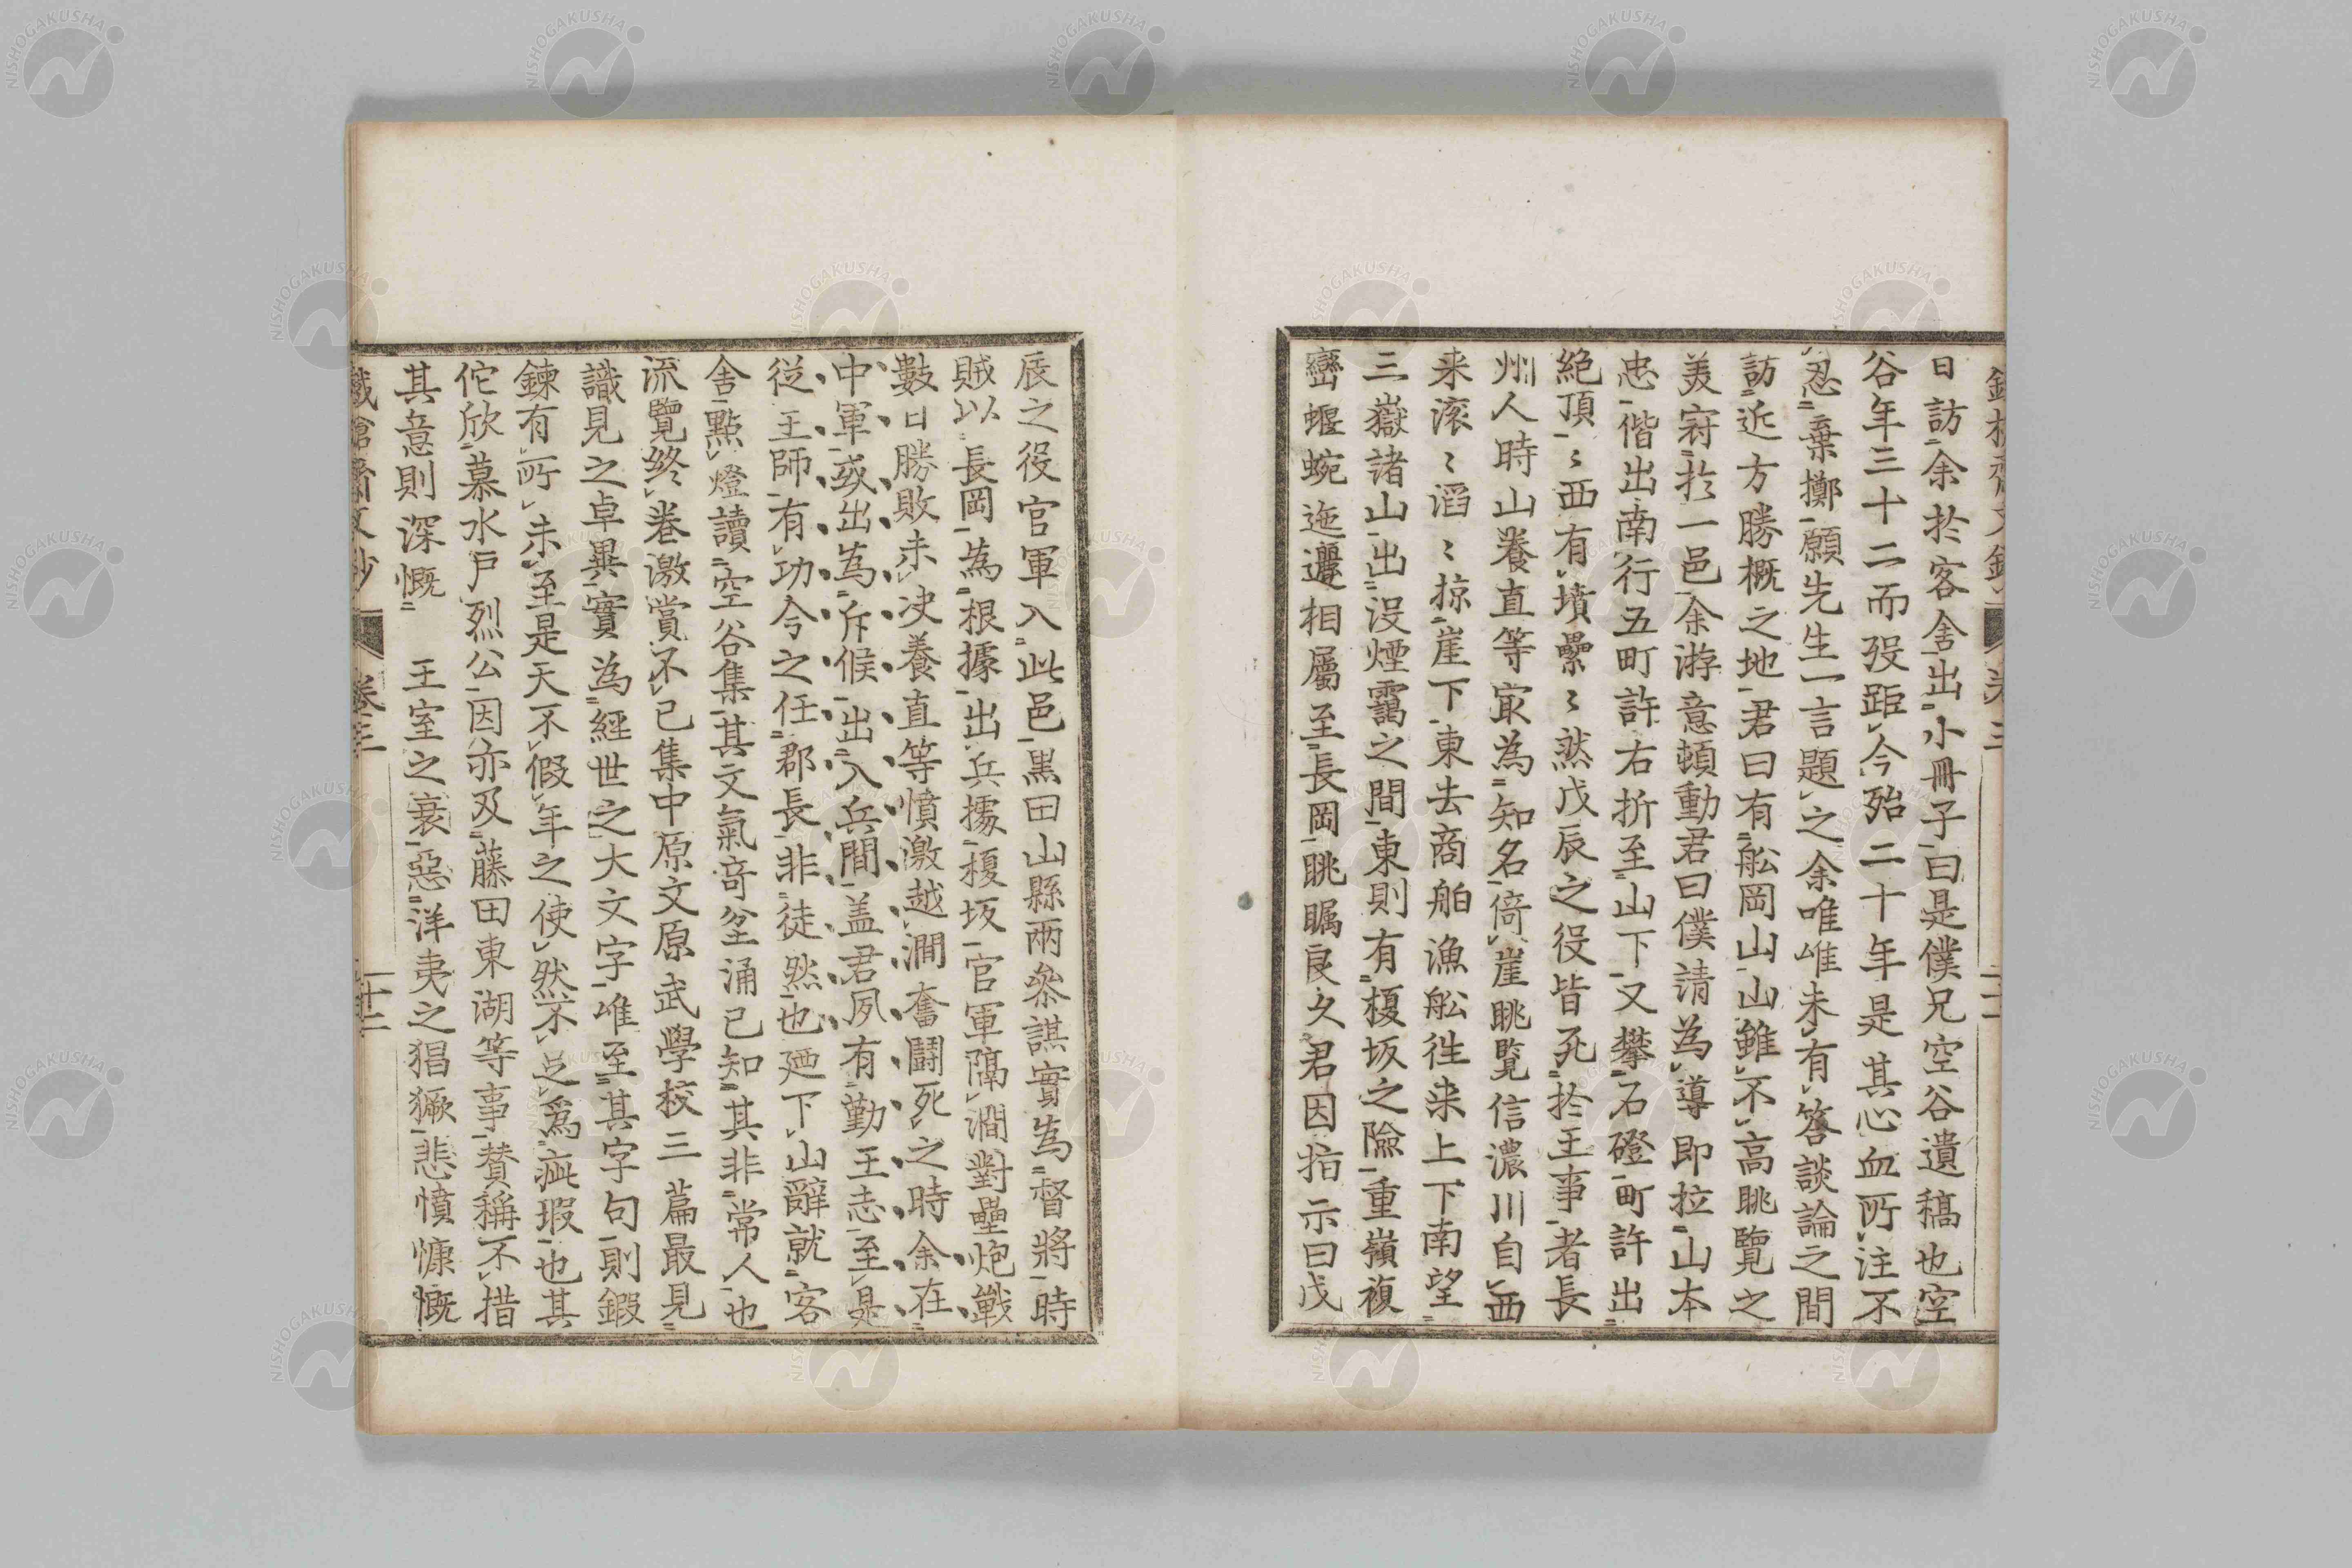 日訪余於客舍出小冊子曰是僕兄空谷遺稿也空
谷年三十二而歿距今殆二十年是其心血所注不
忍棄擲願先生一言題之余唯唯未有答談論之間
訪近方勝概之地君曰有舩岡山山雖不高眺覽之
美冠於一邑余游意頓動君曰僕請為導即拉山本
忠偕出南行五町許右折至山下又攀石磴町許出
絕頂〻西有墳纍〻然戊辰之役皆死於王事者長
州人時山養直等冣為知名倚崖眺覧信濃川自西
来滚〻滔〻掠崖下東去商舶漁舩徃来上下南望
三嶽諸山出没煙靄之間東則有榎坂之險重嶺複
巒蝘蜿迤邐相屬至長岡眺矚良久君因指示曰戊
辰之役官軍入此邑黒田山縣兩叅謀實為督將時
賊以長岡為根據出兵據榎坂官軍隔澗對壘炮戰
數日勝敗未决養直等憤激越澗奮鬪死之時余在
中軍或出為斥候出入兵間盖君夙有勤王志至是
從王師有功今之任郡長非徒然也廼下山辭就客
舍點燈讀空谷集其文氣奇坌涌已知其非常人也
流覽終巻激賞不已集中原文原武學校三篇最見
識見之卓異實為經世之大文字唯至其字句則鍜
鍊有所未至是天不假年之使然不足爲疵瑕也其
佗欣慕水戸烈公因亦及藤田東湖等事賛稱不措
其意則深慨 王室之衰惡洋夷之猖獗悲憤慷慨
鐵槍齋文鈔 巻三 二十二